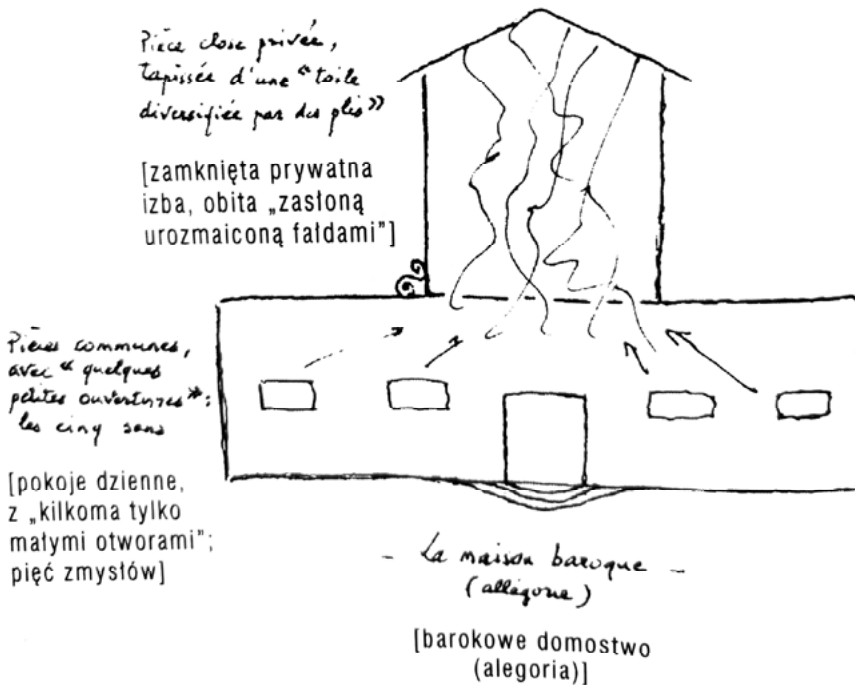 Pièce close privée,
tapissée d'une « toile
diversifiée par des plis »
[zamknięta prywatna
izba, obita „zasłoną
urozmaiconą fałdami”]
Pièces communes,
avec « quelques
petites ouvertures » :
les cinq sens
[pokoje dzienne,
z „kilkoma tylko
małymi otworami”;
pięć zmysłów]
- La maison baroque -
(allégorie)
[barokowe domostwo
(alegoria)]